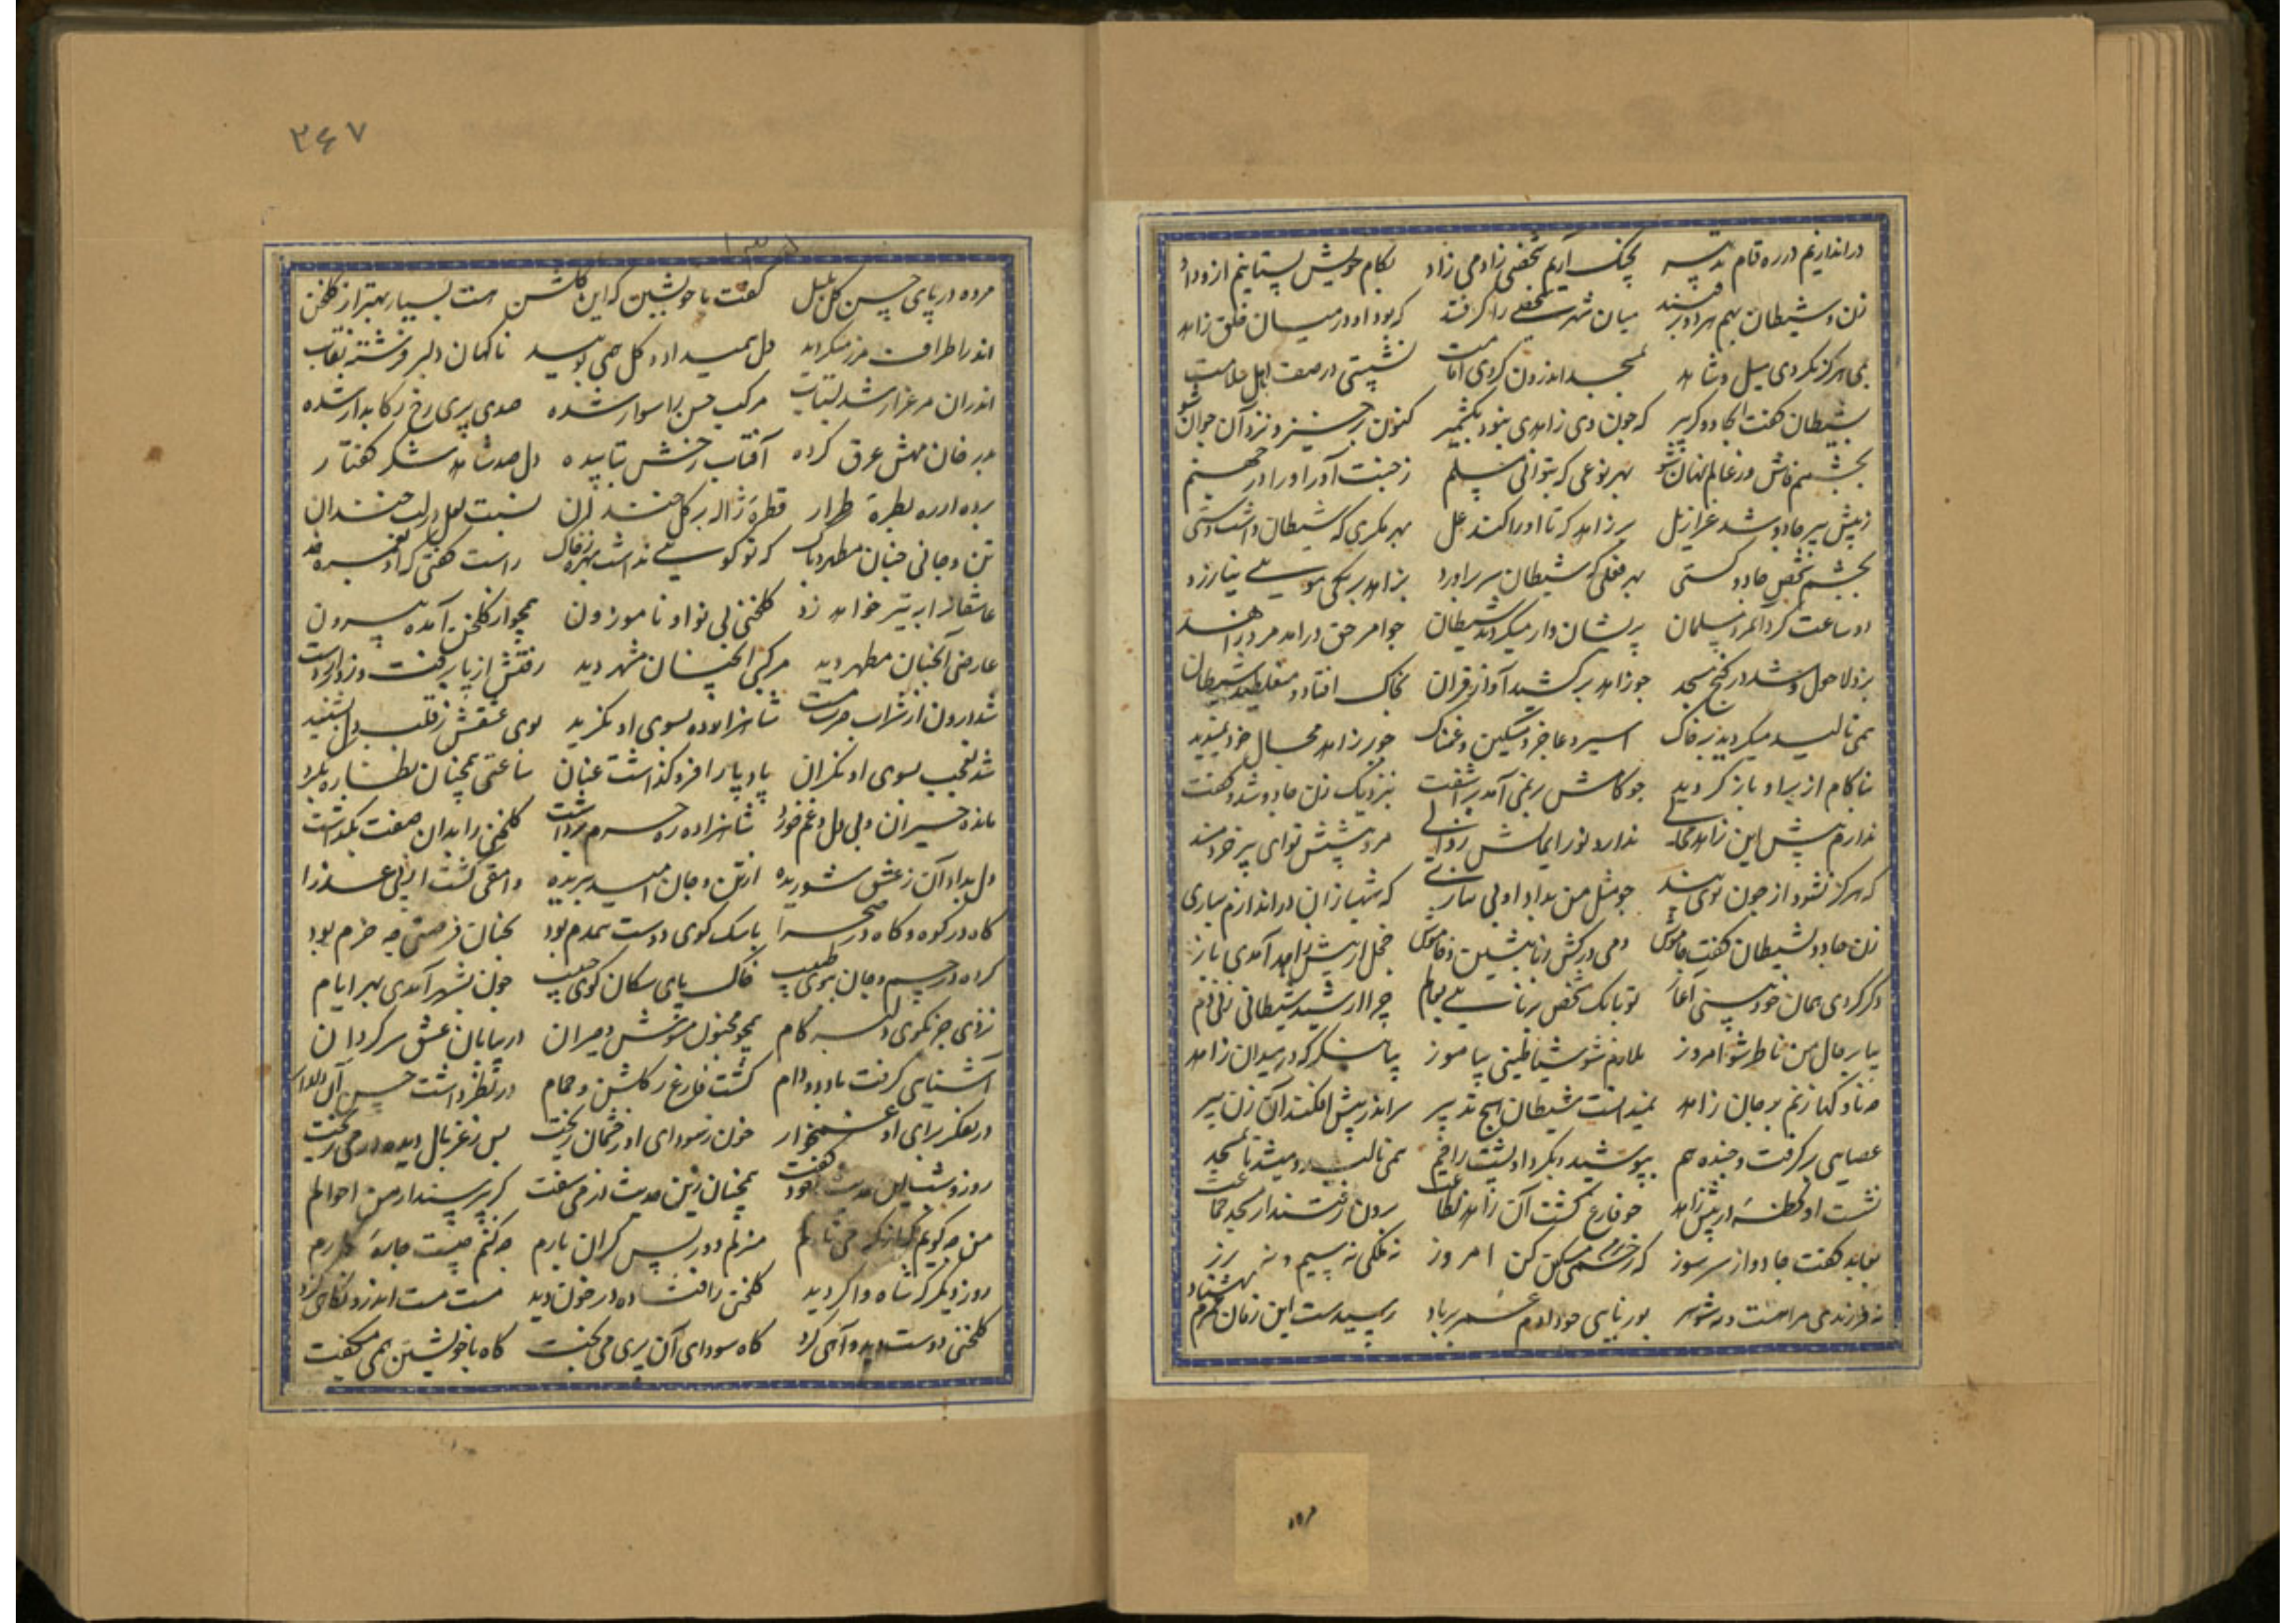 در اندازیم در ره دام تدبیر بچنگ آریم شخصی زادمی زاد بکام خویش بستانیم ازو داد
زن و شیطان بهم هر دو میان شهر شخصی را گرفتند که بود او در میان خلق زاهد
نمی هرگز نکردی میل و شاهد بمسجد اندرون کردی امامت نشستی در صف اهل ملامت
بشیطان گفت آنجا دو که چون وی زاهدی نبود بکشمیر کنون برخیز و نزد آن جوان شو
بچشم فاش و ز عالم نهان شو بهر نوعی که بتوانی ز جنت آور او را در جهنم
ز پیش پیر جادو شد عزازیل بر زاهد که تا او را کند بهر مکری که شیطان داشت
بچشم شخص جادو بهر فعلی که شیطان سر برآورد بزاهد بر یکی مویی نیازرد
دو ساعت گرد آن مرد مسلمان پریشان وار میگردید شیطان چو امر حق درآمد مرد
بزد لاحول و شد در کنج مسجد چو زاهد برکشید آواز قرآن بخاک افتاد و میغلطید شیطان
همی نالید و میگردید بر خاک اسیر و عاجز و مسکین و غمناک چو بر زاهد مجال خود نمیدید
بناکام از بر او باز گردید چو کامش برنمی آمد برآشفت بنزدیک زن جادو شد و گفت
ندارم پیش این زاهد مجالی ندارد نور ایمانش زوالی مرو پیشش تو ای پیر خردمند
که هرگز نشنود از چون تویی پند چو مثل من بداد او بی
زن جادو بشیطان گفت خاموش دمی درکش و بنشین و خاموش خجل از پیش زاهد آمدی باز
دگر کردی همان خودپرستی آغاز تو با یک شخص چرا از شید شیطانی زنی دم
بیا بر حال من ناظر شو امروز ملازم شو شیاطینی بیاموز بیا بنگر که در میدان زاهد
چه ناوکها زنم بر جان زاهد نمیدانست شیطان هیچ تدبیر سر اندر پیش افکند آن زن پیر
عصایی برگرفت و جنده هم بپوشید و بکرد او پشت را خم همی نالید و میشد تا بمسجد
نشست او لحظه در پیش زاهد چو فارغ گشت آن زاهد ز طاعت برون رفتند از مسجد جماعت
بعابد گفت جادو از سر سوز که رحمی کن امروز نه ملکی نه سیم و نه زر
نه فرزندی مرا هست و نه شوهر برنایی خود دادم عمر بر باد رسیدست این زمان عمرم بهشتاد
۲۶۷
مرده در پای حسن گل بلبل گفت با خویشتن که این گلشن هست بسیار بهتر از گلخن
اندر اطراف مرز میگردید گل همیداد و گل همی بویید ناگهان دلبر فرشته نقاب
اندران مرغزار شد بشتاب مرکب حسن را سوار شده صدی پری رخ رکابدار شده
عرق کرده آفتاب رخش بتابیده دل صد شکر گفتار
برده از ره بطره طرار قطره ژاله بر گل خندان
تن و جانی چنان مطهر و پاک که تو گویی نداشت بهره ز خاک راست گفتی که
عاشقانرا به تیر خواهد زد گلخنی بی نوا و ناموزون همچو از گلخن آمده بیرون
عارضی آنچنان مطهر دید مرکبی آنچنان مشهر دید رفتش از پا برفت و زد از دست
شد درون از شراب حیرت مست شاهزاده بسوی او نگرید بوی عشقش ز قلب دل بشنید
شد تعجب بسوی او نگران بادپا را فرو گذاشت عنان ساعتی همچنان نظاره بکرد
مانده حیران و بی دل و غم خورد شاهزاده ره حرم برداشت گلخنی را بدان صفت بگذاشت
دل بداد آن ز عشق شوریده از تن و جان امید ببریده وامقی گشت از پی عذرا
گاه در کوه و گاه در صحرا با سگ کوی دوست همدم بود بچنان فرصتی چه خرم بود
کرده در جسم و جان بوی طبیب خاک پای سگان کوی حبیب چون بشهر آمدی بهر ایام
نزدی جز بکوی دلبر گام همچو مجنون مشوش و حیران در بیابان عشق سرگردان
آشنایی گرفت با دد و دام گشت فارغ ز گلشن و حمام در نظر داشت حسن آن دلدار
در تفکر برای او غمخوار خون ز سودای او ز چشمان ریخت پس ز غربال دیده در می بیخت
روز و شب این حدیث همچنان زین حدیث در می سفت گر بپرسند از من احوالم
من چه گویم منزلم دور و بس گران بارم چه کنم چیست چاره کارم
روز دیگر که شاه واگردید گلخنی را فتاده در خون دید مست مست اندرو نگاهی کرد
گلخنی دوست دید و آهی کرد گاه سودای آن پری می پخت گاه با خویشتن همی میگفت